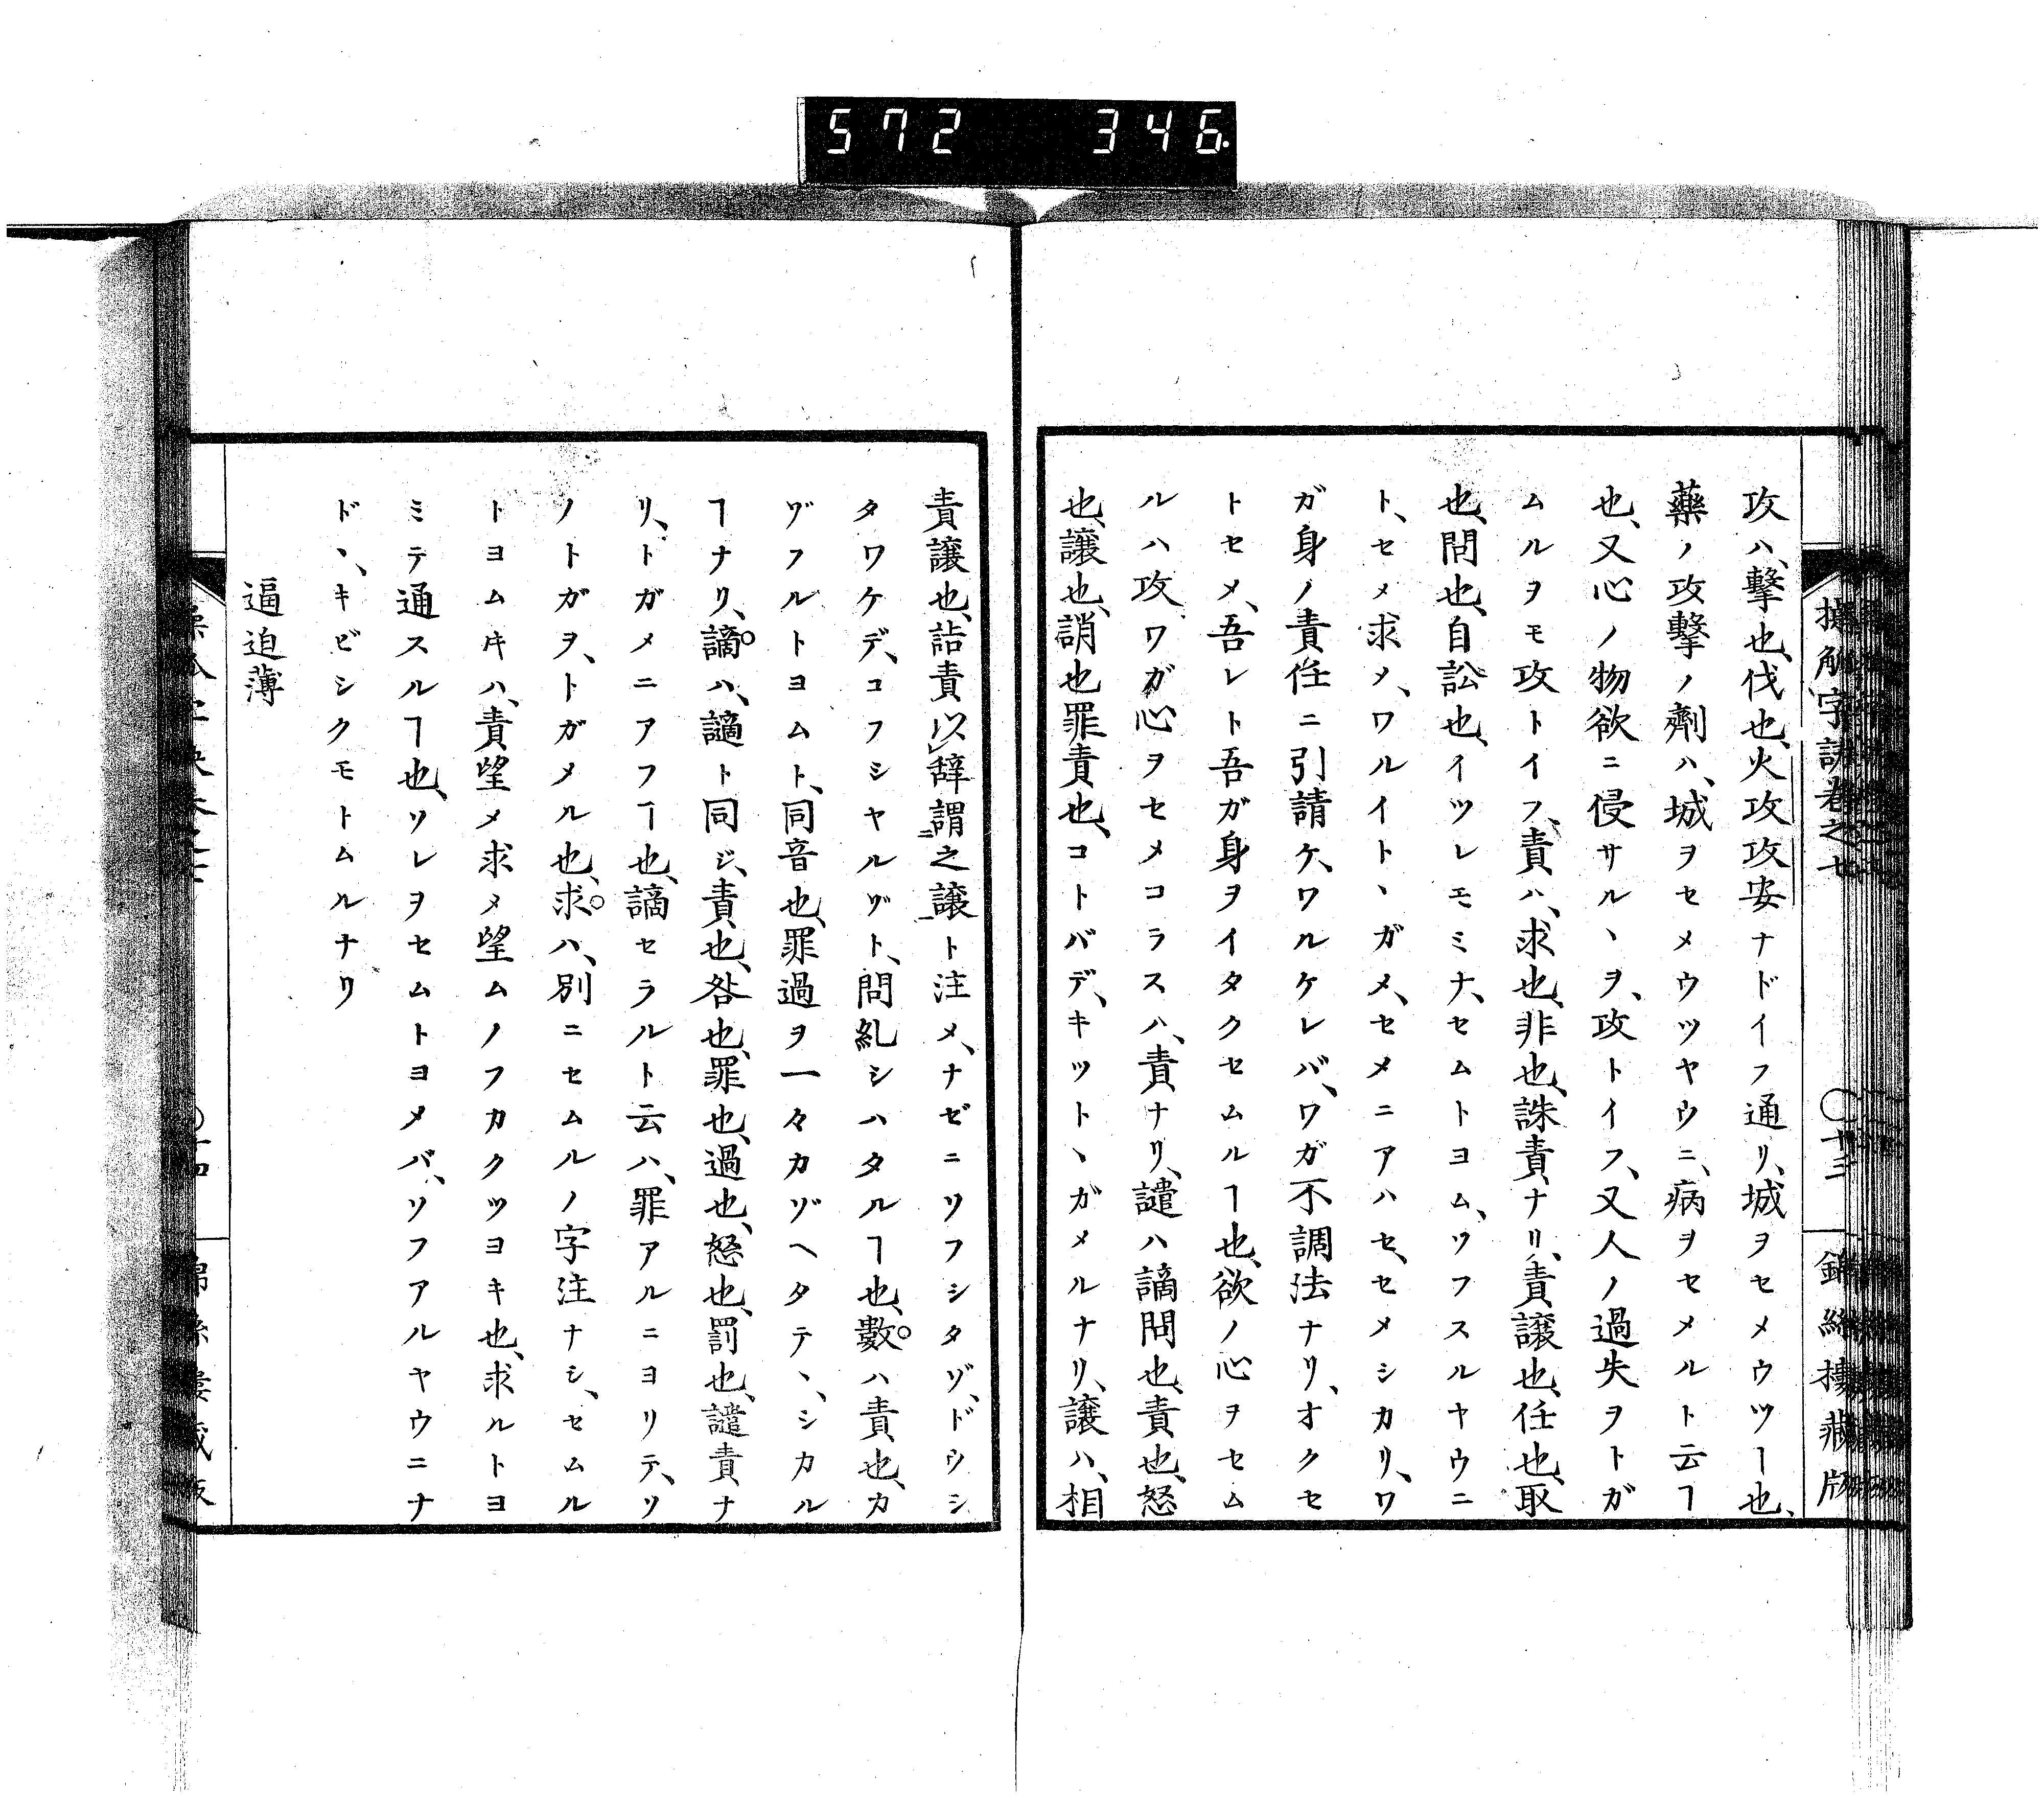 572 346
攻ハ、擊也、伐也、火攻攻安ナドイフ通リ、城ヲセメウツヿ也、
藥ノ攻擊ノ劑ハ、城ヲセメウツヤウニ、病ヲセメルト云ヿ
也、又心ノ物欲ニ侵サルヽヲ、攻トイフ、又人ノ過失ヲトガ
ムルヲモ攻トイフ、責ハ、求也、非也、誅責ナリ、責譲也、任也、取
也、問也、自訟也、イツレモミナ、セムトヨム、ツフスルヤウニ
ト、セメ求メ、ワルイトヽガメ、セメニアハセ、セメシカリ、ワ
ガ身ノ責任ニ引請ケ、ワルケレバ、ワガ不調法ナリ、オクセ
トセメ、吾レト吾ガ身ヲイタクセムルヿ也、欲ノ心ヲセム
ルハ攻ワガ心ヲセメコラスハ、責ナリ、譴ハ謫問也、責也、怒
也、譲也、誚也罪責也、コトバデ、キツトヽガメルナリ、譲ハ、相
責譲也、詰責以辭謂之譲ト注メ、ナゼニソフシタゾ、ドウシ
タワケデ、コフシヤルゾト、問糺シハタルヿ也、數ハ責也、カ
ゾフルトヨムト、同音也、罪過ヲ一々カゾヘタテヽ、シカル
ヿナリ、謫ハ、讁ト同ジ、責也、咎也、罪也、過也、怒也、罰也、譴責ナ
リ、トガメニアフヿ也、謫セラルト云ハ、罪アルニヨリテ、ソ
ノトガヲ、トガメル也、求ハ、別ニセムルノ字注ナシ、セムル
トヨムキハ、責望メ求メ望ムノフカクツヨキ也、求ルトヨ
ミテ通スルヿ也、ソレヲセムトヨメバ、ソフアルヤウニナ
ドヽ、キビシクモトムルナリ
逼迫薄